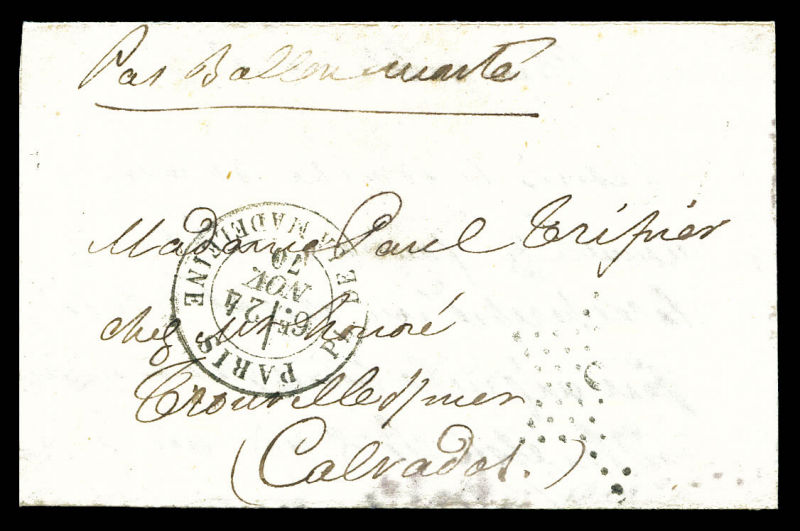 Par Ballon monté
Madame Paul Trifier
chez Mr honoré
Trouville s/mer
(Calvados.)
PARIS
PL. DE LA MADELEINE
6E
24
NOV.
70